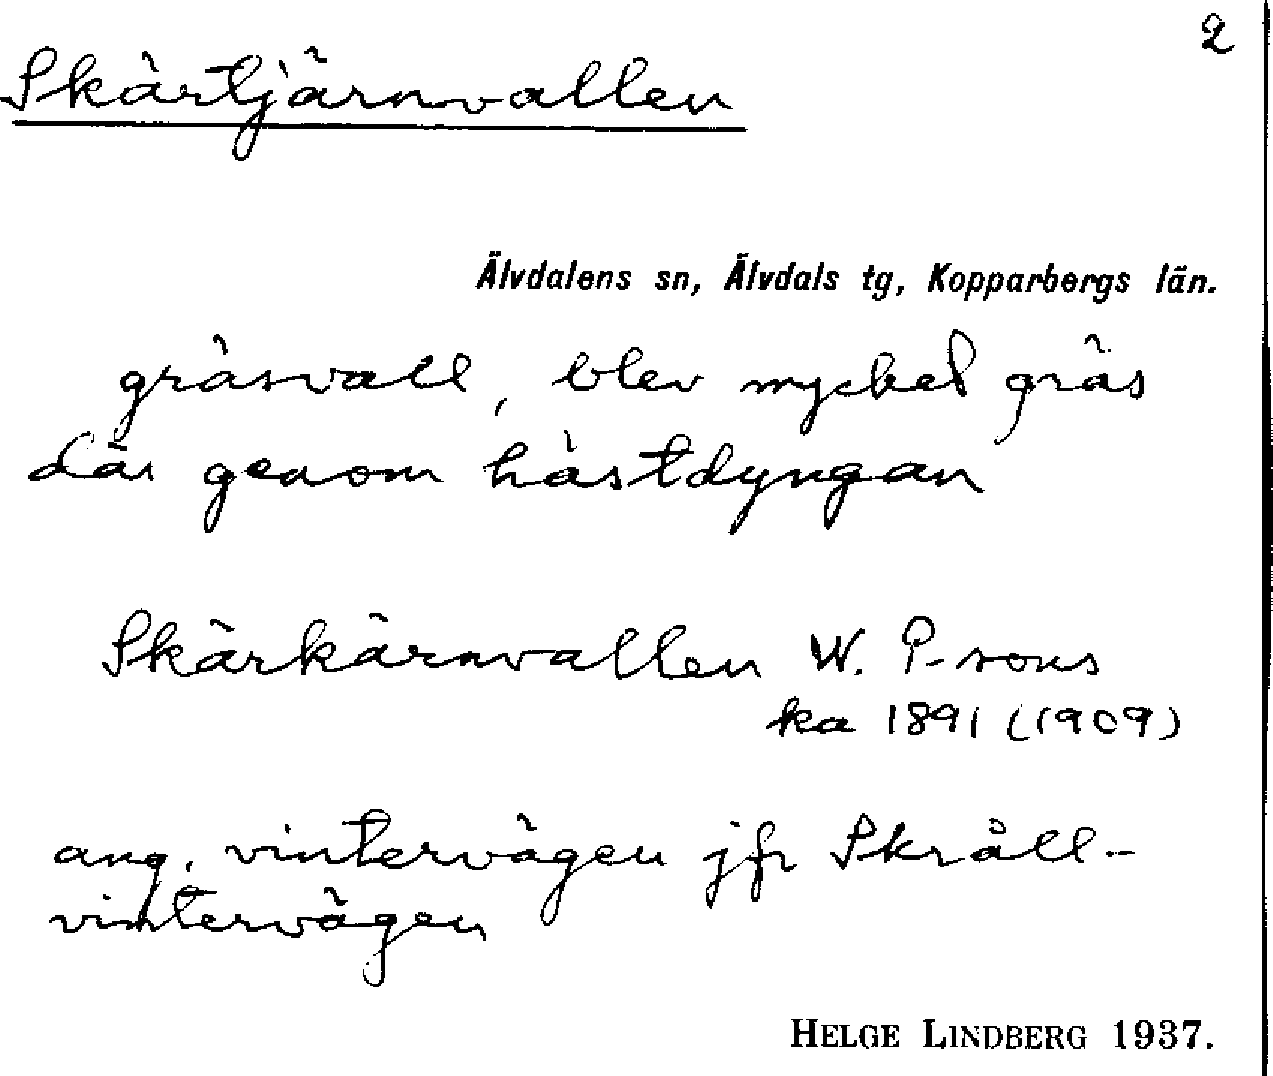 2
Skärtjärnvallen
Älvdalens sn, Älvdals tg, Kopparbergs län.
gräsvall, blev mycket gräs
där genom hästdyngan
Skärkärnvallen W. P-sons
ka 1891 (1909)
ang. vintervägen jfr Skräll-
vintervägen
HELGE LINDBERG 1937.